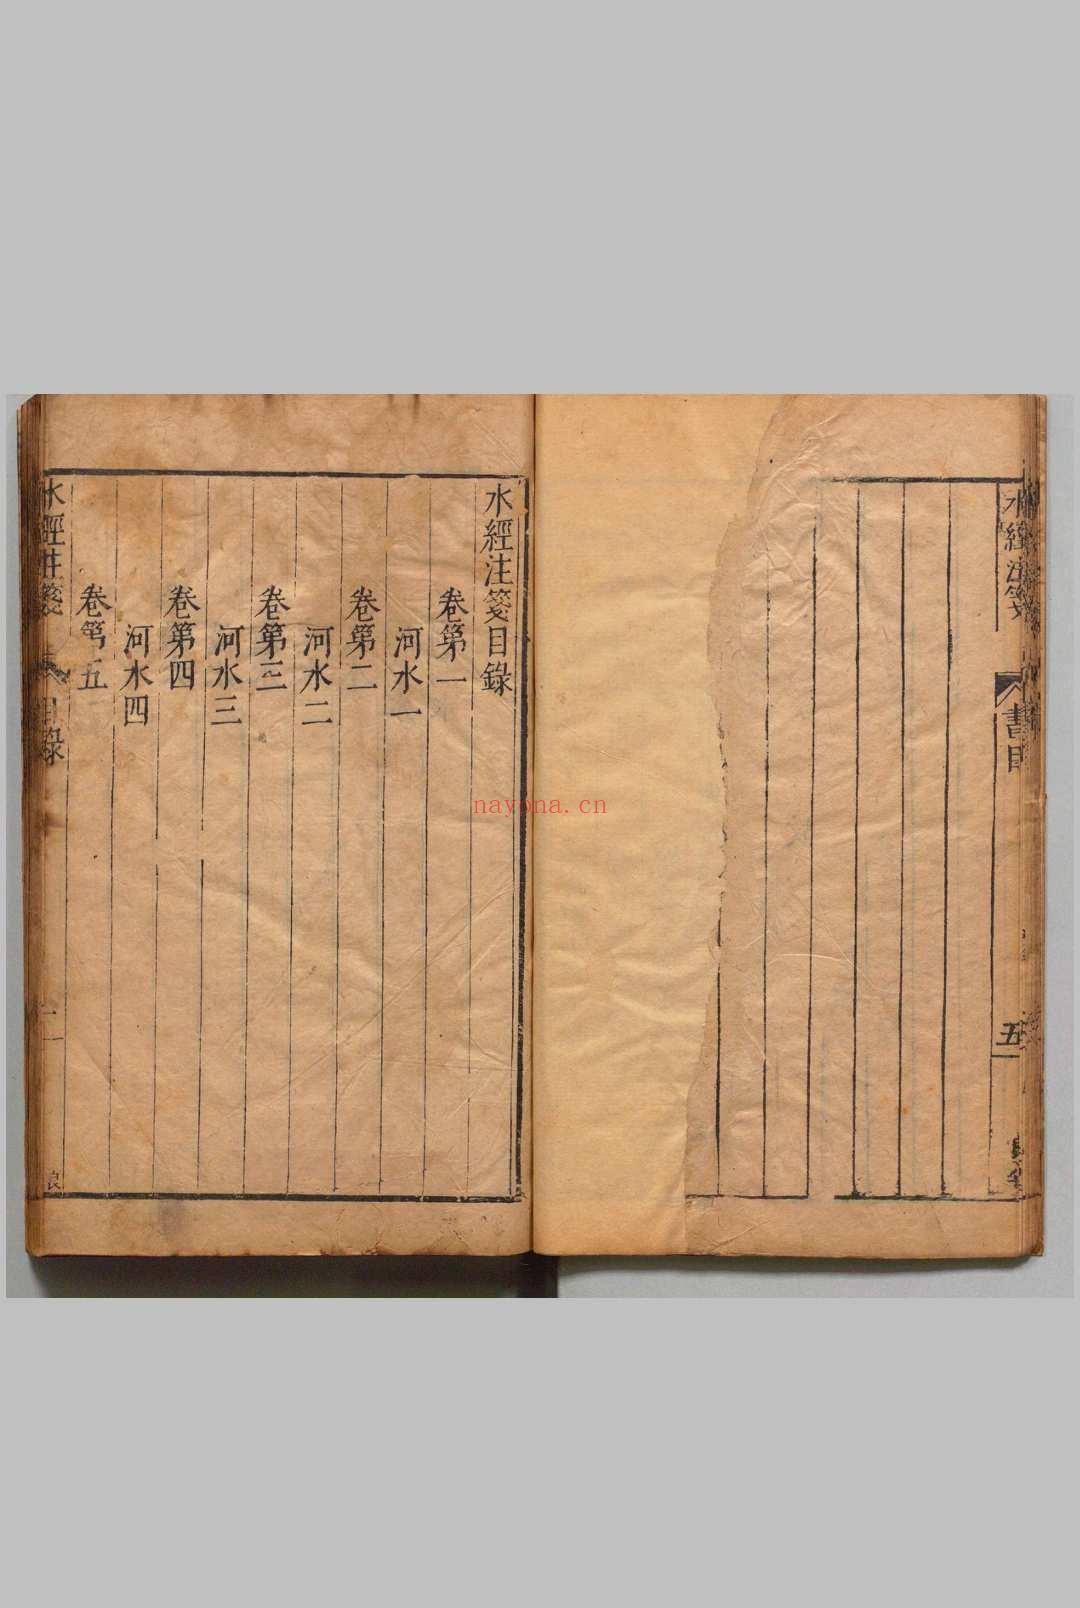 水經注箋
書目
五
水經注箋目錄
卷第一
河水一
卷第二
河水二
卷第三
河水三
卷第四
河水四
卷第五
水經注箋
目錄
一
nayona.cn